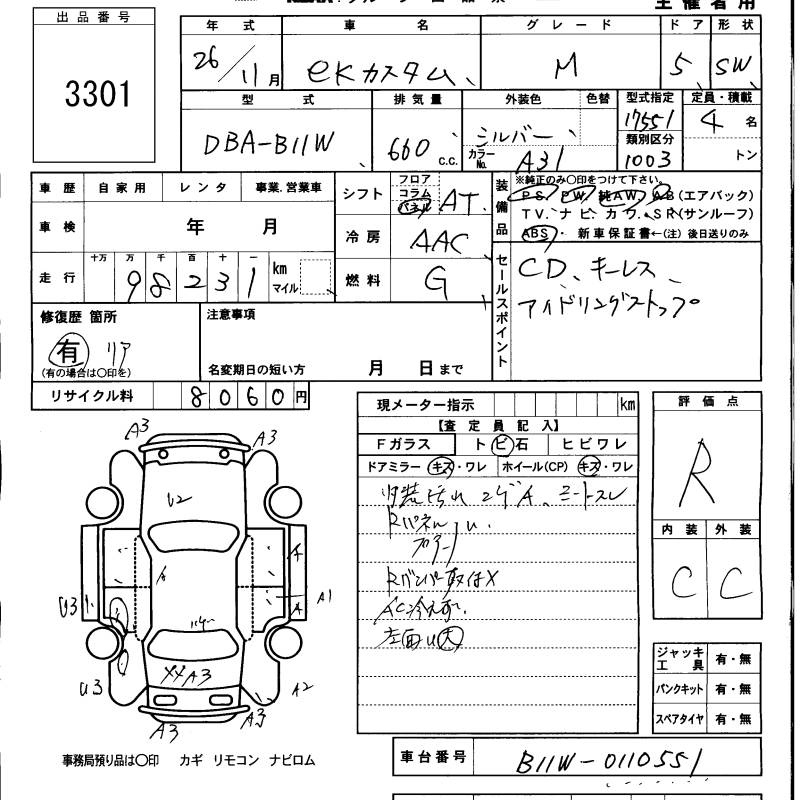 主催者用
出品番号
3301
年式 車名 グレード ドア 形状
26/11月 eKカスタム M 5 SW
型式 排気量 外装色 色替 型式指定 定員・積載
DBA-B11W 660 c.c. シルバー 17551 4名
カラーNo. A31 類別区分 1003 トン
車歴 自家用 レンタ 事業.営業車
車検 年 月
走行 十万 万 千 百 十 一
98231 km マイル
シフト フロア コラム パネル AT
冷房 AAC
燃料 G
装備品 ※純正のみ〇印をつけて下さい。
PS. PW. 純AW. AB(エアバック)
TV.ナビ.カワ.SR(サンルーフ)
ABS・ 新車保証書←(注) 後日送りのみ
セールスポイント
CD、キーレス、
アイドリングストップ
修復歴 箇所
有 リア
(有の場合は〇印を)
注意事項
名変期日の短い方 月 日まで
リサイクル料 8060円
現メーター指示 km
【査定員記入】
Fガラス トビ石 ヒビワレ
ドアミラー キズ・ワレ ホイール(CP) キズ・ワレ
内装汚れ コゲA、シートスレ
Rパネルu.
フロアー
Rバンパー取付X
AC冷えず.
左面u大
評価点
R
内装 外装
C C
ジャッキ工具 有・無
パンクキット 有・無
スペアタイヤ 有・無
A3 A3
U2
A
A
A
U3 A1
XX A3
U3 A2
A3 A3
事務局預り品は〇印 カギ リモコン ナビロム
車台番号 B11W-0110551